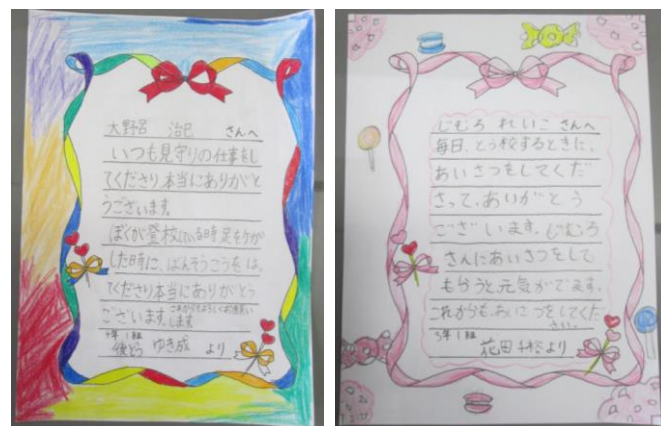 大野呂 治巳 さんへ
いつも見守りの仕事をし
てくださり本当にありがと
うございます。
ぼくが登校している時足をケガ
した時に、ばんそうこうをは。
てくださり本当にありがとう
ございます。これからもよろしくお願い
します
年1組
後どう ゆき成 より
じむろ れいこ さんへ
毎日、とう校するときに、
あいさつをしてくだ
さって、ありがとう
ございます。じむろ
さんにあいさつをして
もらうと元気がでます。
これからも、あいさつをしてくだ
さい。
5年1組
花田 より